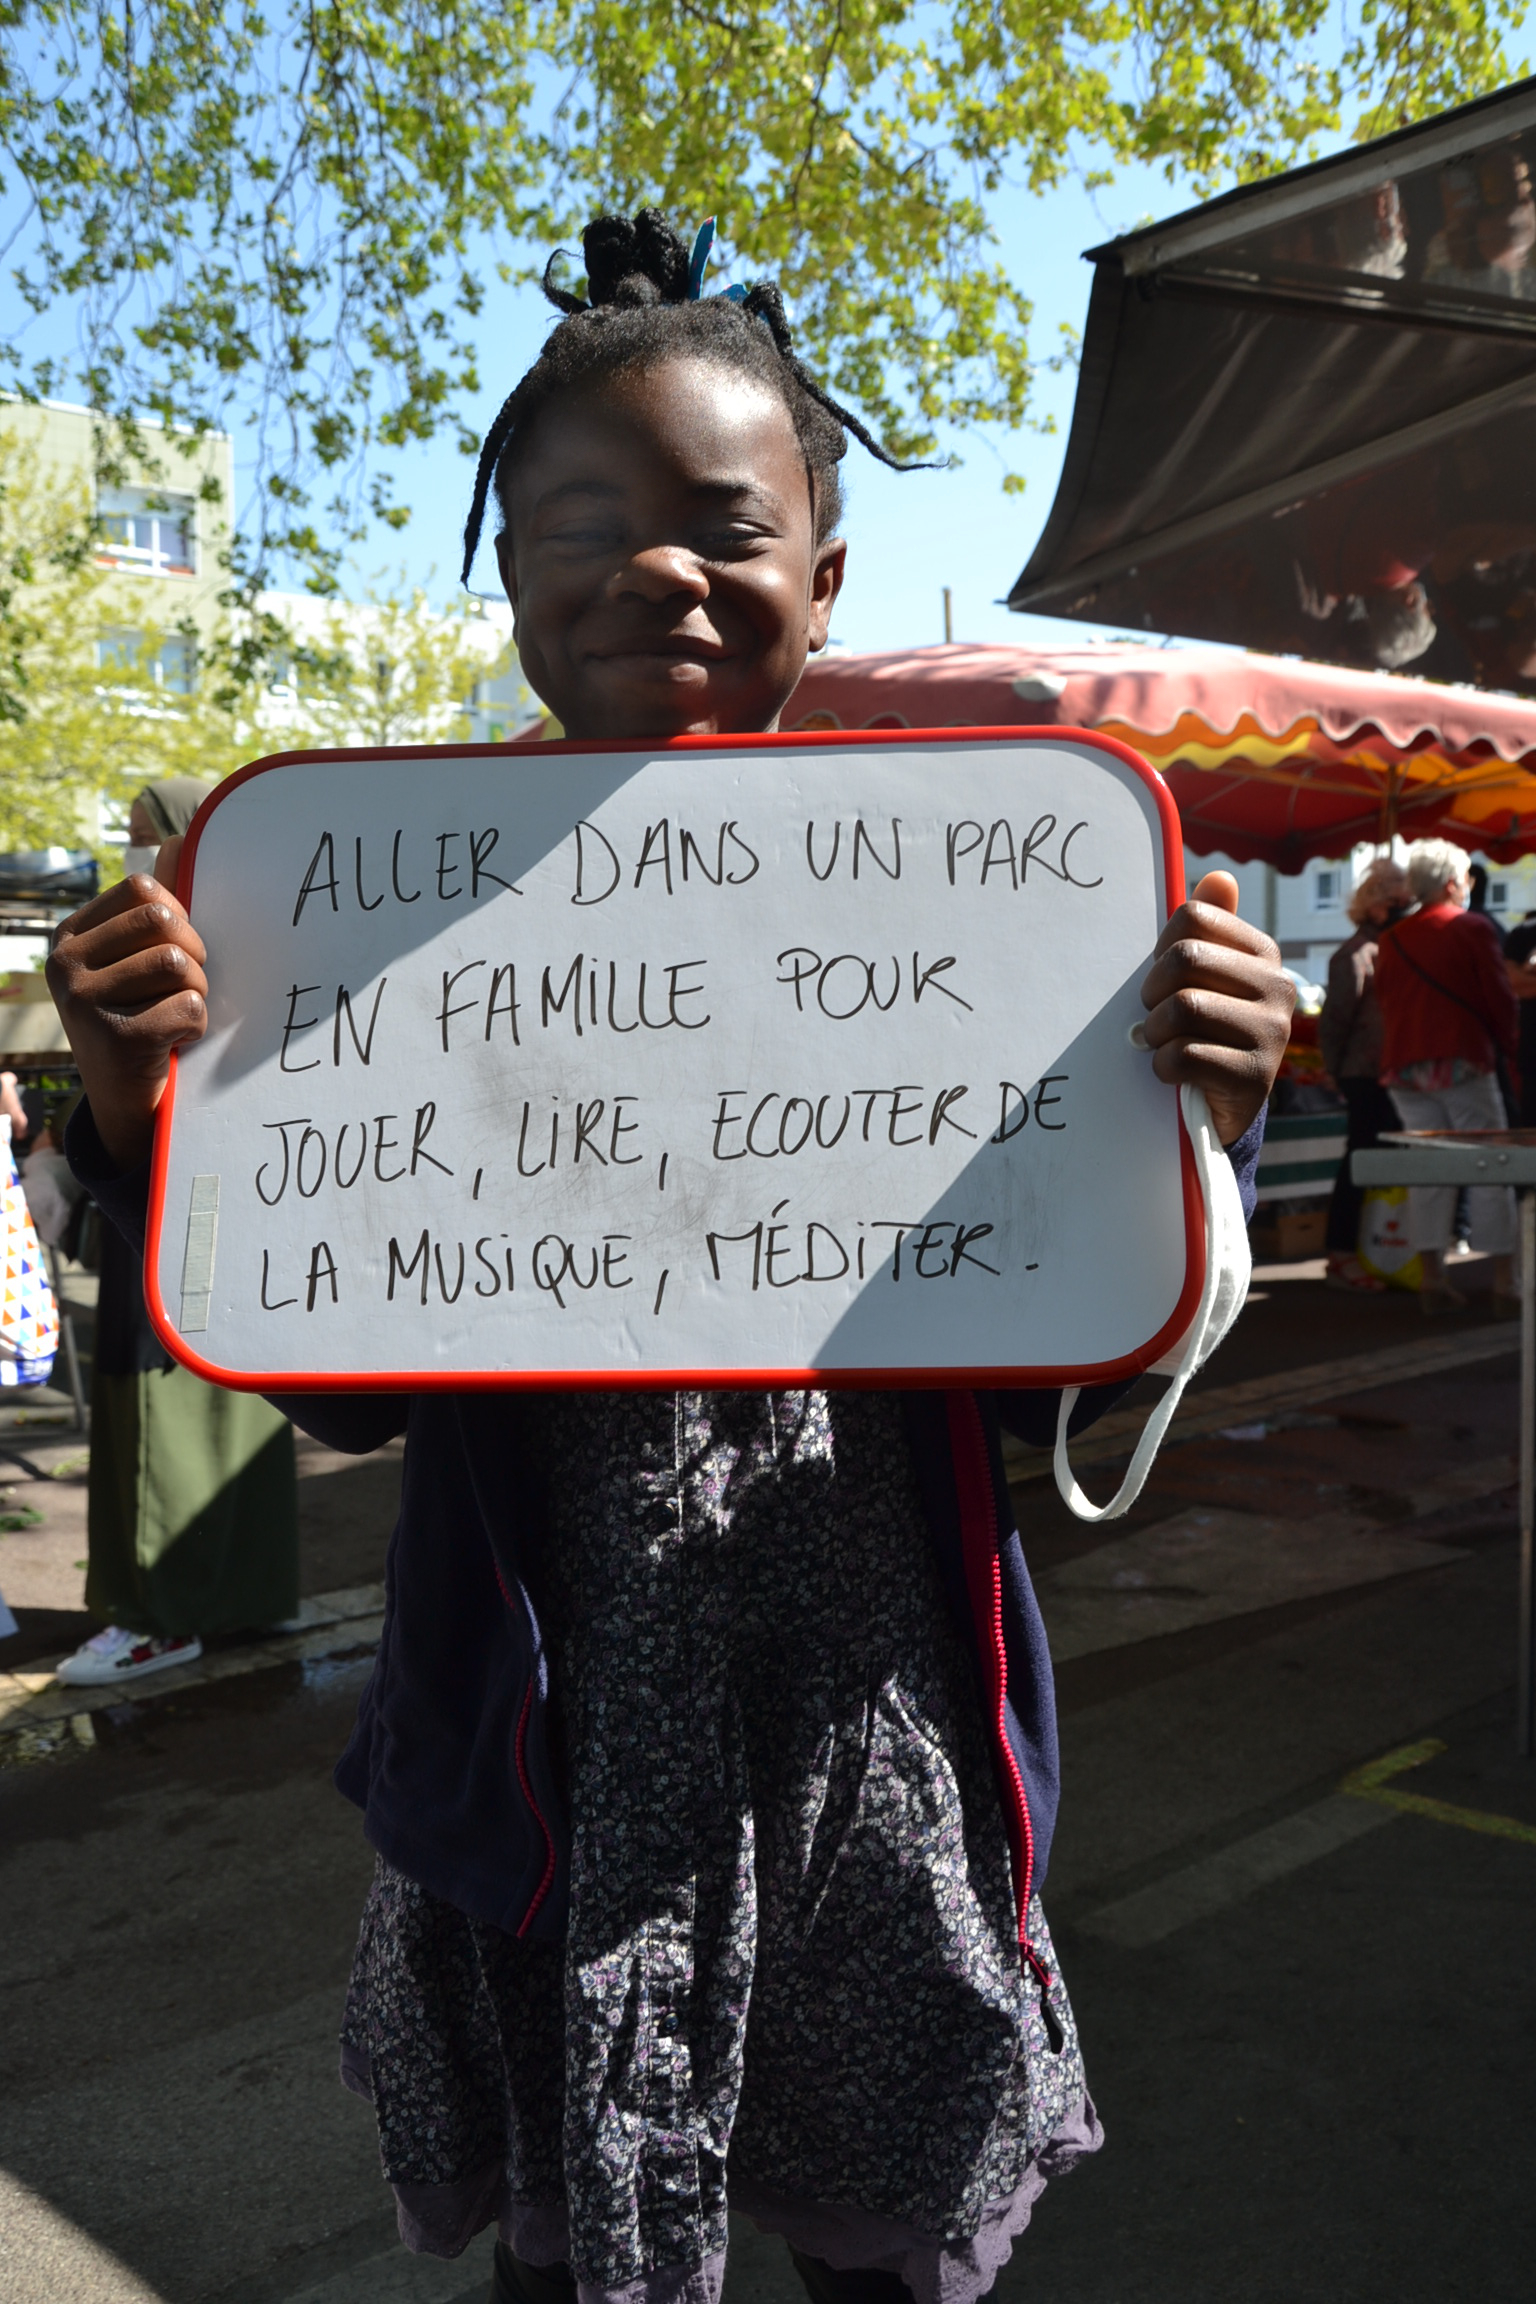 ALLER DANS UN PARC
EN FAMiLLE POUR
JOUER, LiRE, ECOUTER DE
LA MUSiQUE, MÉDiTER.